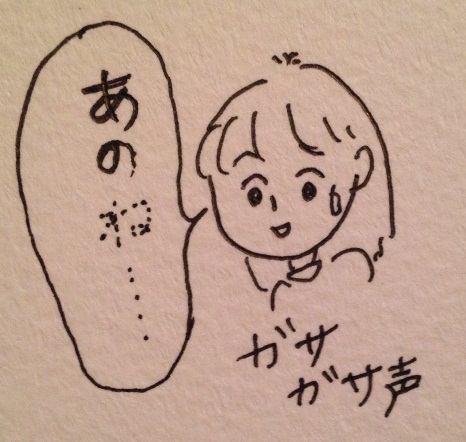 あのね……
ガサ
ガサ声